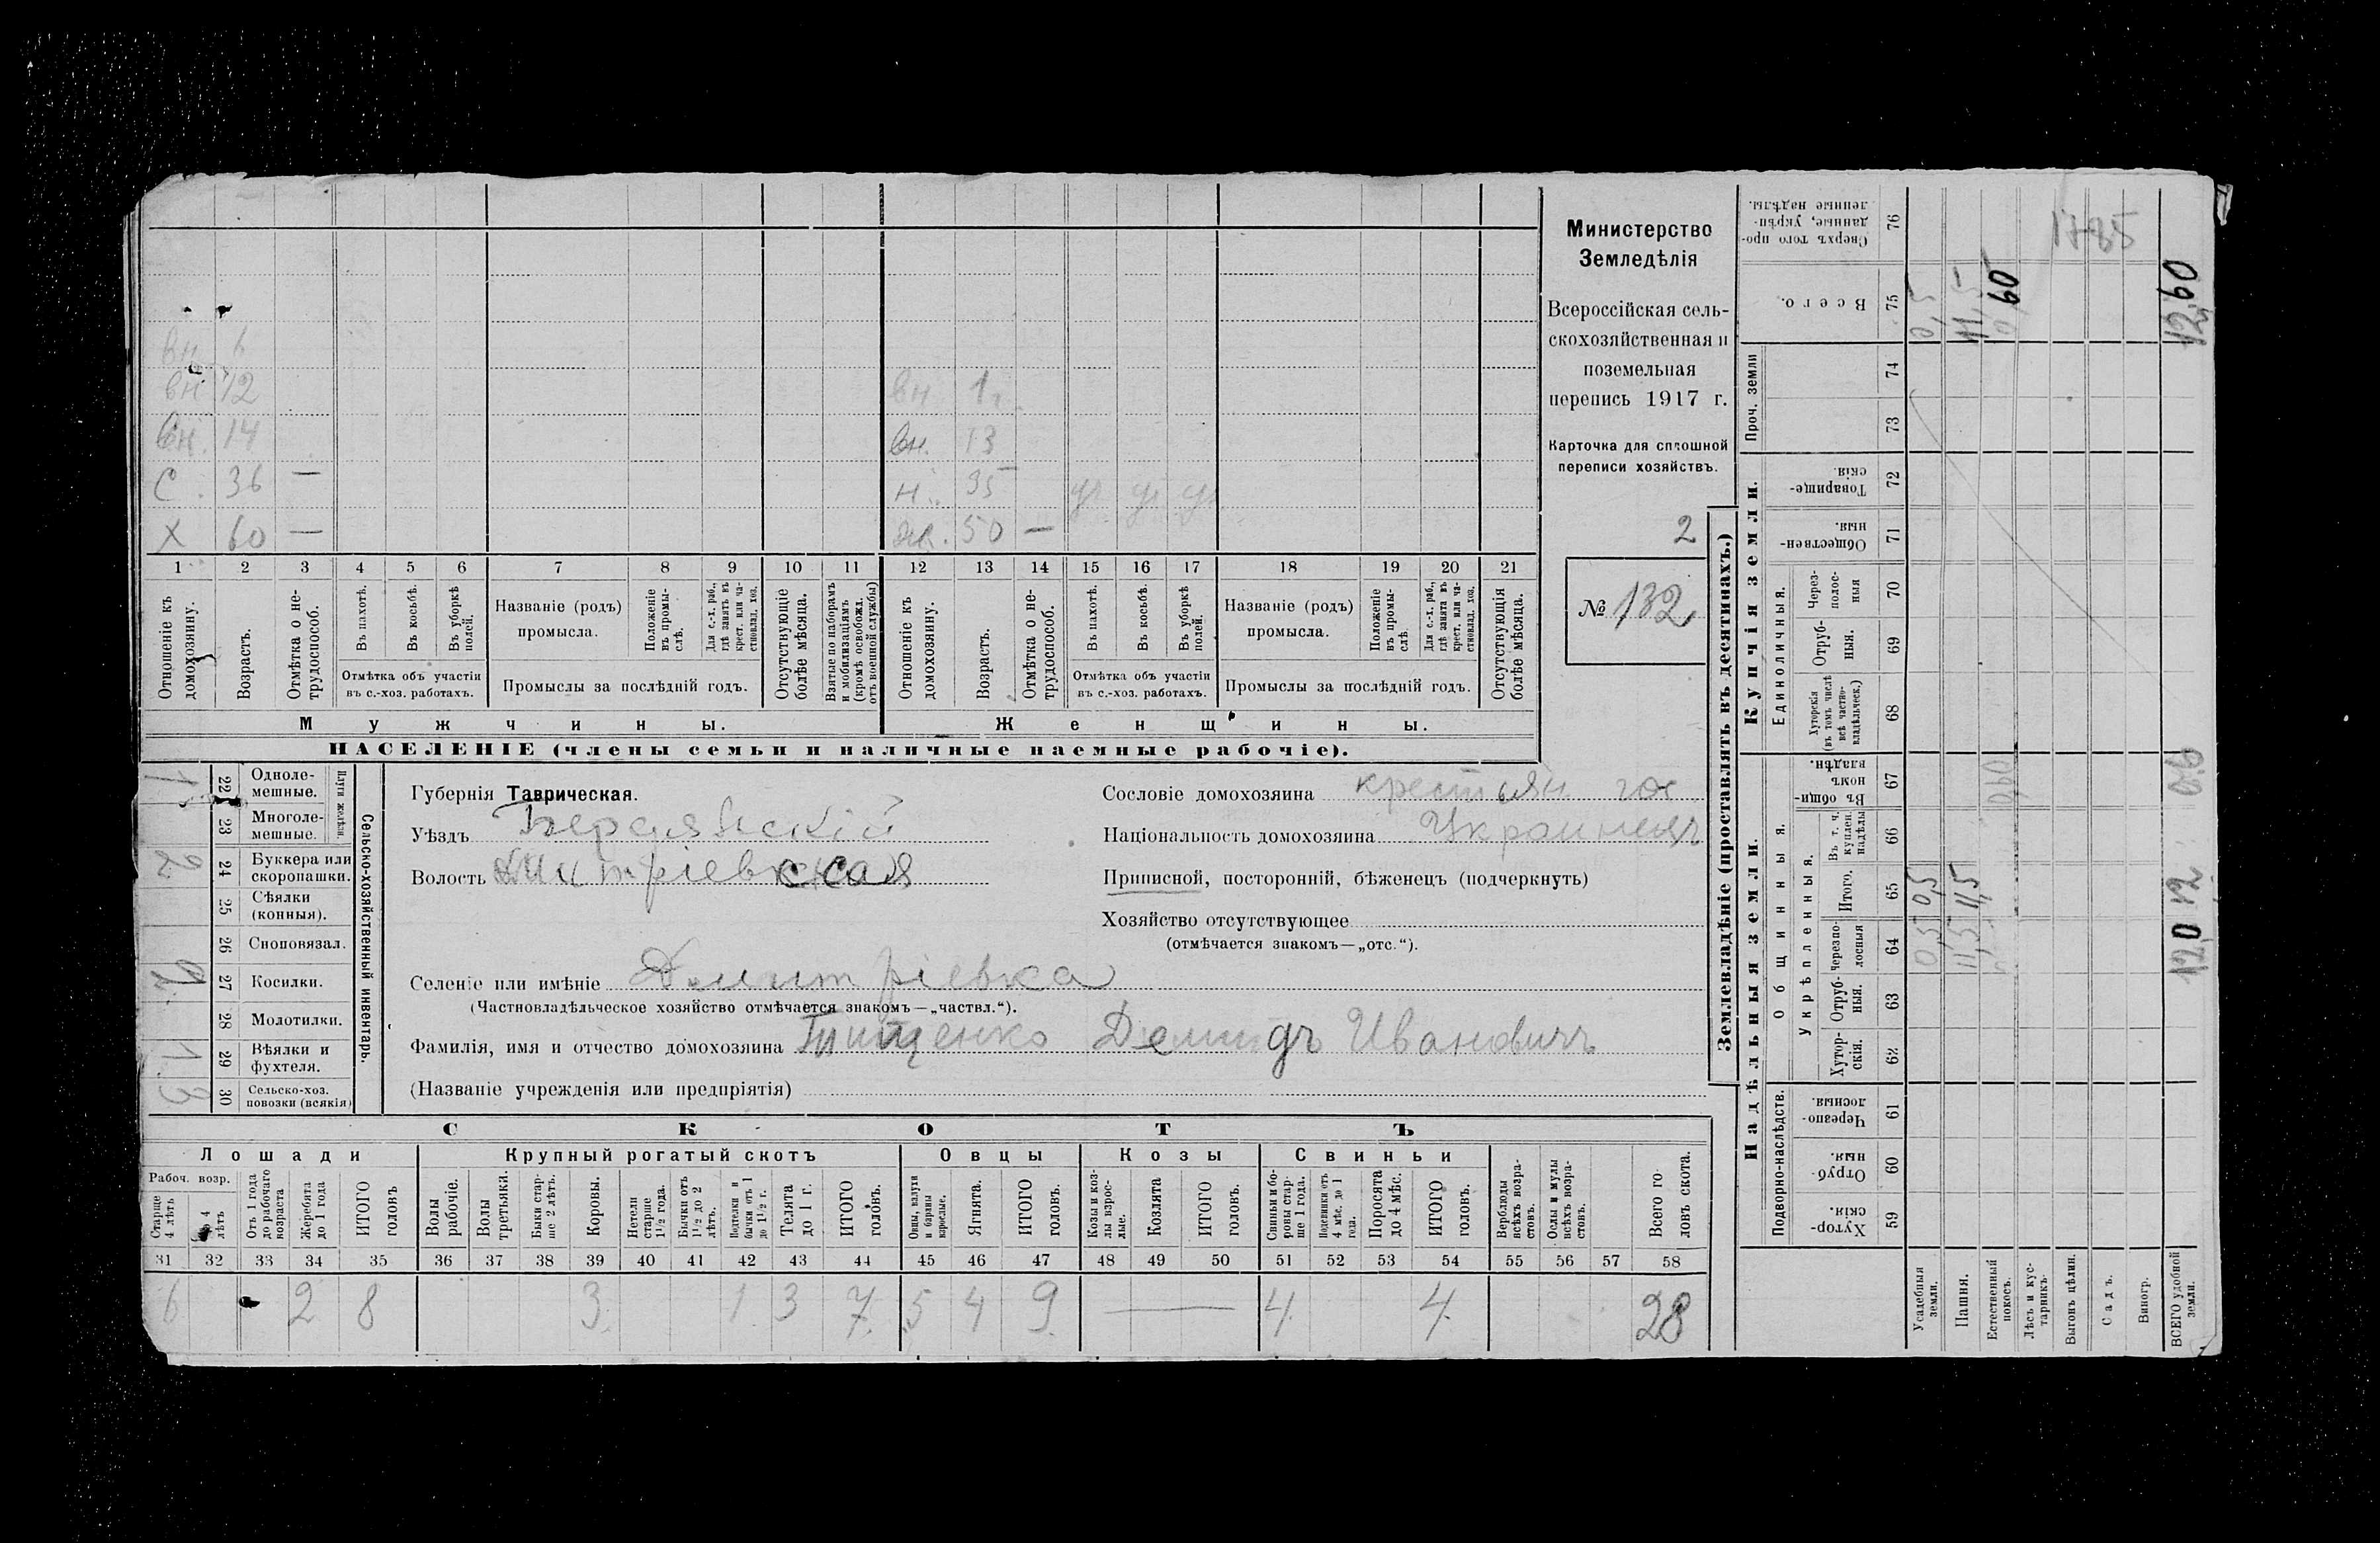 вн 6
вн 12 вн 1
вн. 14 вн. 13
С 36 — н. 35
Х 60 — 50 —
1 2 3 4 5 6 7 8 9 10 11 12 13 14 15 16 17 18 19 20 21
Отношеніе къ домохозяину. Возрастъ. Отмѣтка о нетрудоспособ. Въ пахотѣ. Въ косьбѣ. Въ уборкѣ полей. Названіе (родъ) промысла. Положеніе въ промыслѣ. Для с.-х. раб., гдѣ занятъ въ крест. или частновлад. хоз. Отсутствующіе болѣе мѣсяца. Взятые по наборамъ и мобилизаціямъ (кромѣ освобожд. отъ военной службы) Отношеніе къ домохозяину. Возрастъ. Отмѣтка о нетрудоспособ. Въ пахотѣ. Въ косьбѣ. Въ уборкѣ полей. Названіе (родъ) промысла. Положеніе въ промыслѣ. Для с.-х. раб., гдѣ занята въ крест. или частновлад. хоз. Отсутствующія болѣе мѣсяца.
Отмѣтка объ участіи въ с.-хоз. работахъ. Промыслы за послѣдній годъ. Отмѣтка объ участіи въ с.-хоз. работахъ. Промыслы за послѣдній годъ.
Мужчины. Женщины.
НАСЕЛЕНІЕ (члены семьи и наличные наемные рабочіе).
Министерство
Земледѣлія
Всероссійская сель-
скохозяйственная и
поземельная
перепись 1917 г.
Карточка для сплошной
переписи хозяйствъ.
2
№ 132
Сельско-хозяйственный инвентарь.
Плуги желѣзн.
22 Одноле-
мешные. 1
23 Многоле-
мешные.
24 Буккера или
скоропашки. 2
25 Сѣялки
(конныя).
26 Сноповязал.
27 Косилки.
28 Молотилки.
29 Вѣялки и
фухтеля. 1
30 Сельско-хоз.
повозки (всякія) 3
Губернія Таврическая.
Уѣздъ Бердянскій
Волость Дмитріевская
Сословіе домохозяина
Національность домохозяина Украинецъ
Приписной, посторонній, бѣженецъ (подчеркнуть)
Хозяйство отсутствующее
(отмѣчается знакомъ—„отс.“).
Селеніе или имѣніе Дмитріевка
(Частновладѣльческое хозяйство отмѣчается знакомъ—„частвл.“).
Фамилія, имя и отчество домохозяина Тищенко Демидъ Ивановичъ
(Названіе учрежденія или предпріятія)
СКОТЪ
Лошади Крупный рогатый скотъ Овцы Козы Свиньи
Рабоч. возр.
Старше 4 лѣтъ До 4 лѣтъ Отъ 1 года до рабочаго возраста Жеребята до 1 года ИТОГО головъ Волы рабочіе. Волы третьяки. Быки старше 2 лѣтъ. Коровы. Нетели старше 1½ года. Бычки отъ 1½ до 2 лѣтъ. Подтелки и бычки отъ 1 до 1½ г. Телята до 1 г. ИТОГО головъ. Овцы, валухи и бараны взрослые. Ягнята. ИТОГО головъ. Козы и козлы взрослые. Козлята ИТОГО головъ. Свиньи и боровы старше 1 года. Подсвинки отъ 4 мѣс. до 1 года. Поросята до 4 мѣс. ИТОГО головъ. Верблюды всѣхъ возрастовъ. Ослы и мулы всѣхъ возрастовъ. Всего головъ скота.
31 32 33 34 35 36 37 38 39 40 41 42 43 44 45 46 47 48 49 50 51 52 53 54 55 56 57 58
6 2 8 3 1 3 7 5 4 9 — 4 4 28
Землевладѣніе (проставлять въ десятинахъ.)
Надѣльныя земли. Купчія земли. Проч. земли
Подворно-наслѣдств. Общинныя. Единоличныя.
Укрѣпленныя.
Хуторскія. Отрубныя. Черезполосныя Хуторскія. Отрубныя. Черезполосныя Итого. Въ т. ч. куплен. надѣлы Въ общинномъ владѣн. Хуторскія (въ томъ числѣ всѣ частновладѣльческ.) Отрубныя. Черезполосныя Общественныя. Товарищескія. Всего. Сверхъ того проданные, укрѣпленные надѣлы.
59 60 61 62 63 64 65 66 67 68 69 70 71 72 73 74 75 76
Усадебныя земли. 0,5 0,5 0,5
Пашня. 11,5 11,5 11,5
Естественный покосъ. 0,60 0,60
Лѣсъ и кустарникъ.
Выгонъ цѣлин.
Садъ.
Виногр.
ВСЕГО удобной земли. 12,0 12 0,6 12,60